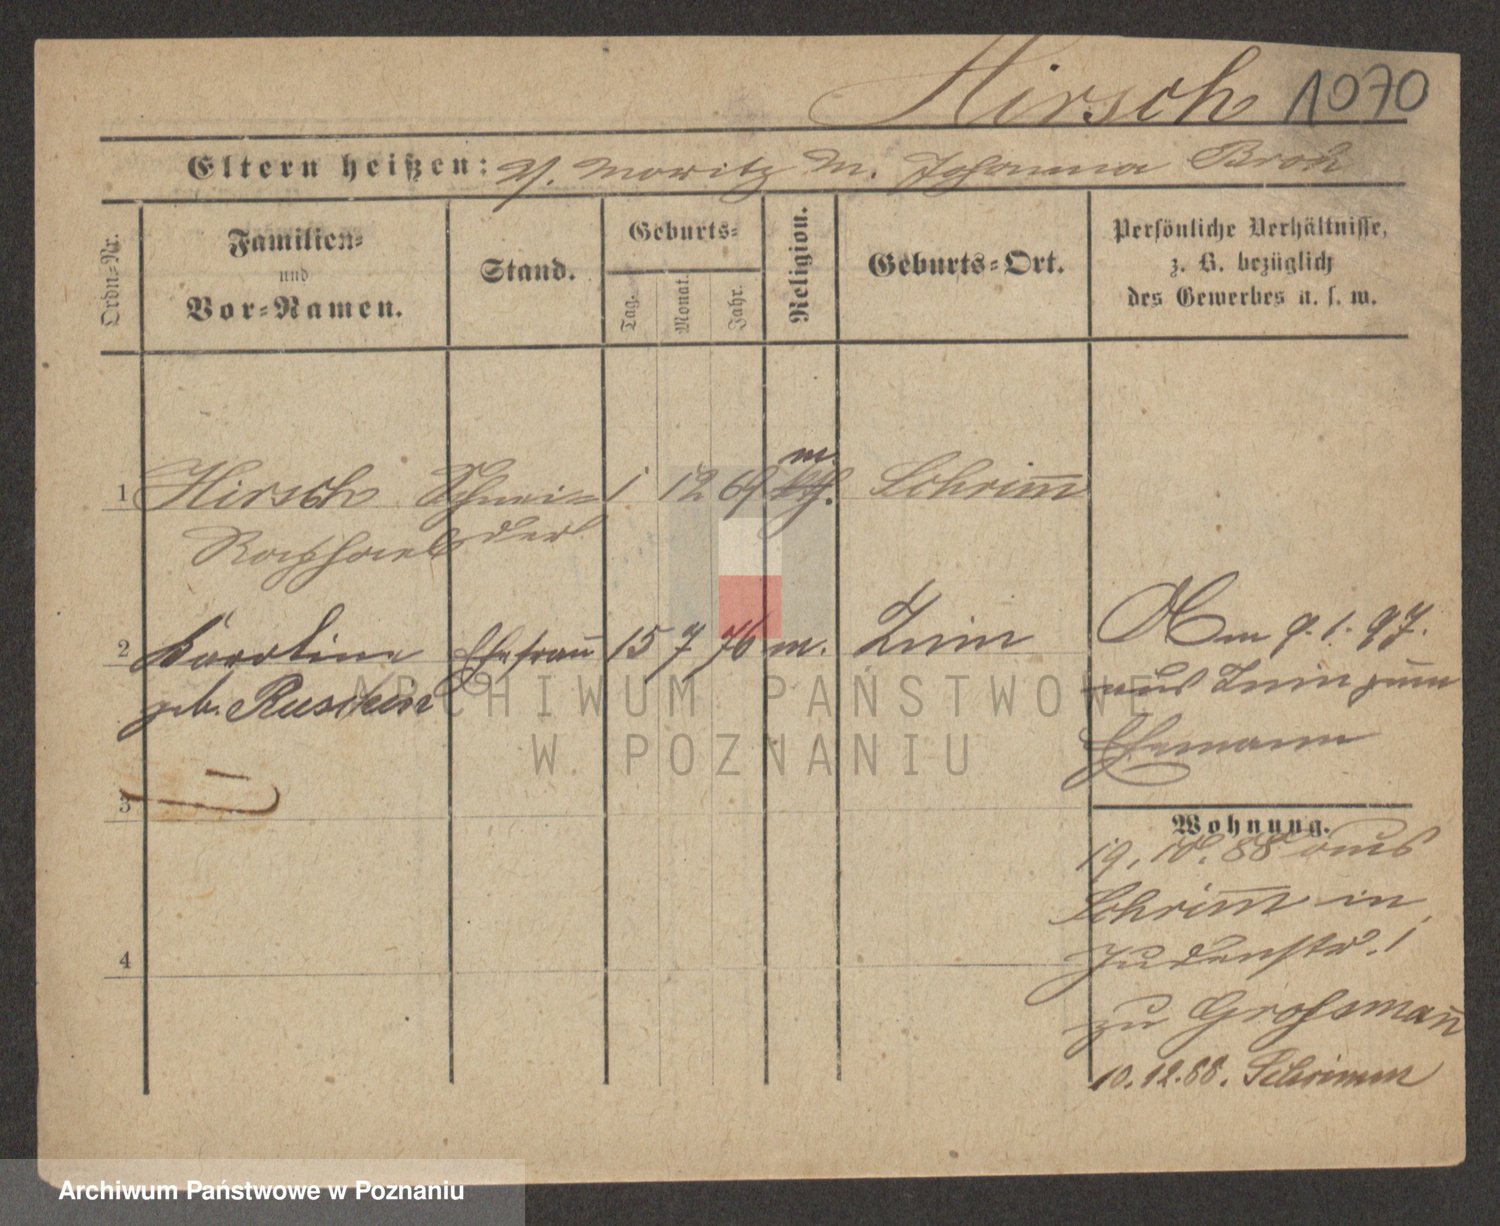 Hirsch 1070
Eltern heißen: V. Moritz M. Johanna Brok
Ordn=Nr.
Familien=
und
Vor=Namen.
Stand.
Geburts=
Tag.
Monat.
Jahr.
Religion.
Geburts=Ort.
Persönliche Verhältnisse,
z. B. bezüglich
des Gewerbes u. s. w.
m.
1 Hirsch Schnei= 1 12 69 Schrimm
Raphael der
2 Karoline Ehefrau 15 7 76 m. Znin
geb.
Am 9.1.97.
aus Znin zum
Ehemann
3
Wohnung.
19. 10. 88 aus
Schrimm in
Judenstr. 1
zu Großmann
4
10.12.88. Schrimm
ARCHIWUM PAŃSTWOWE
W POZNANIU
Archiwum Państwowe w Poznaniu